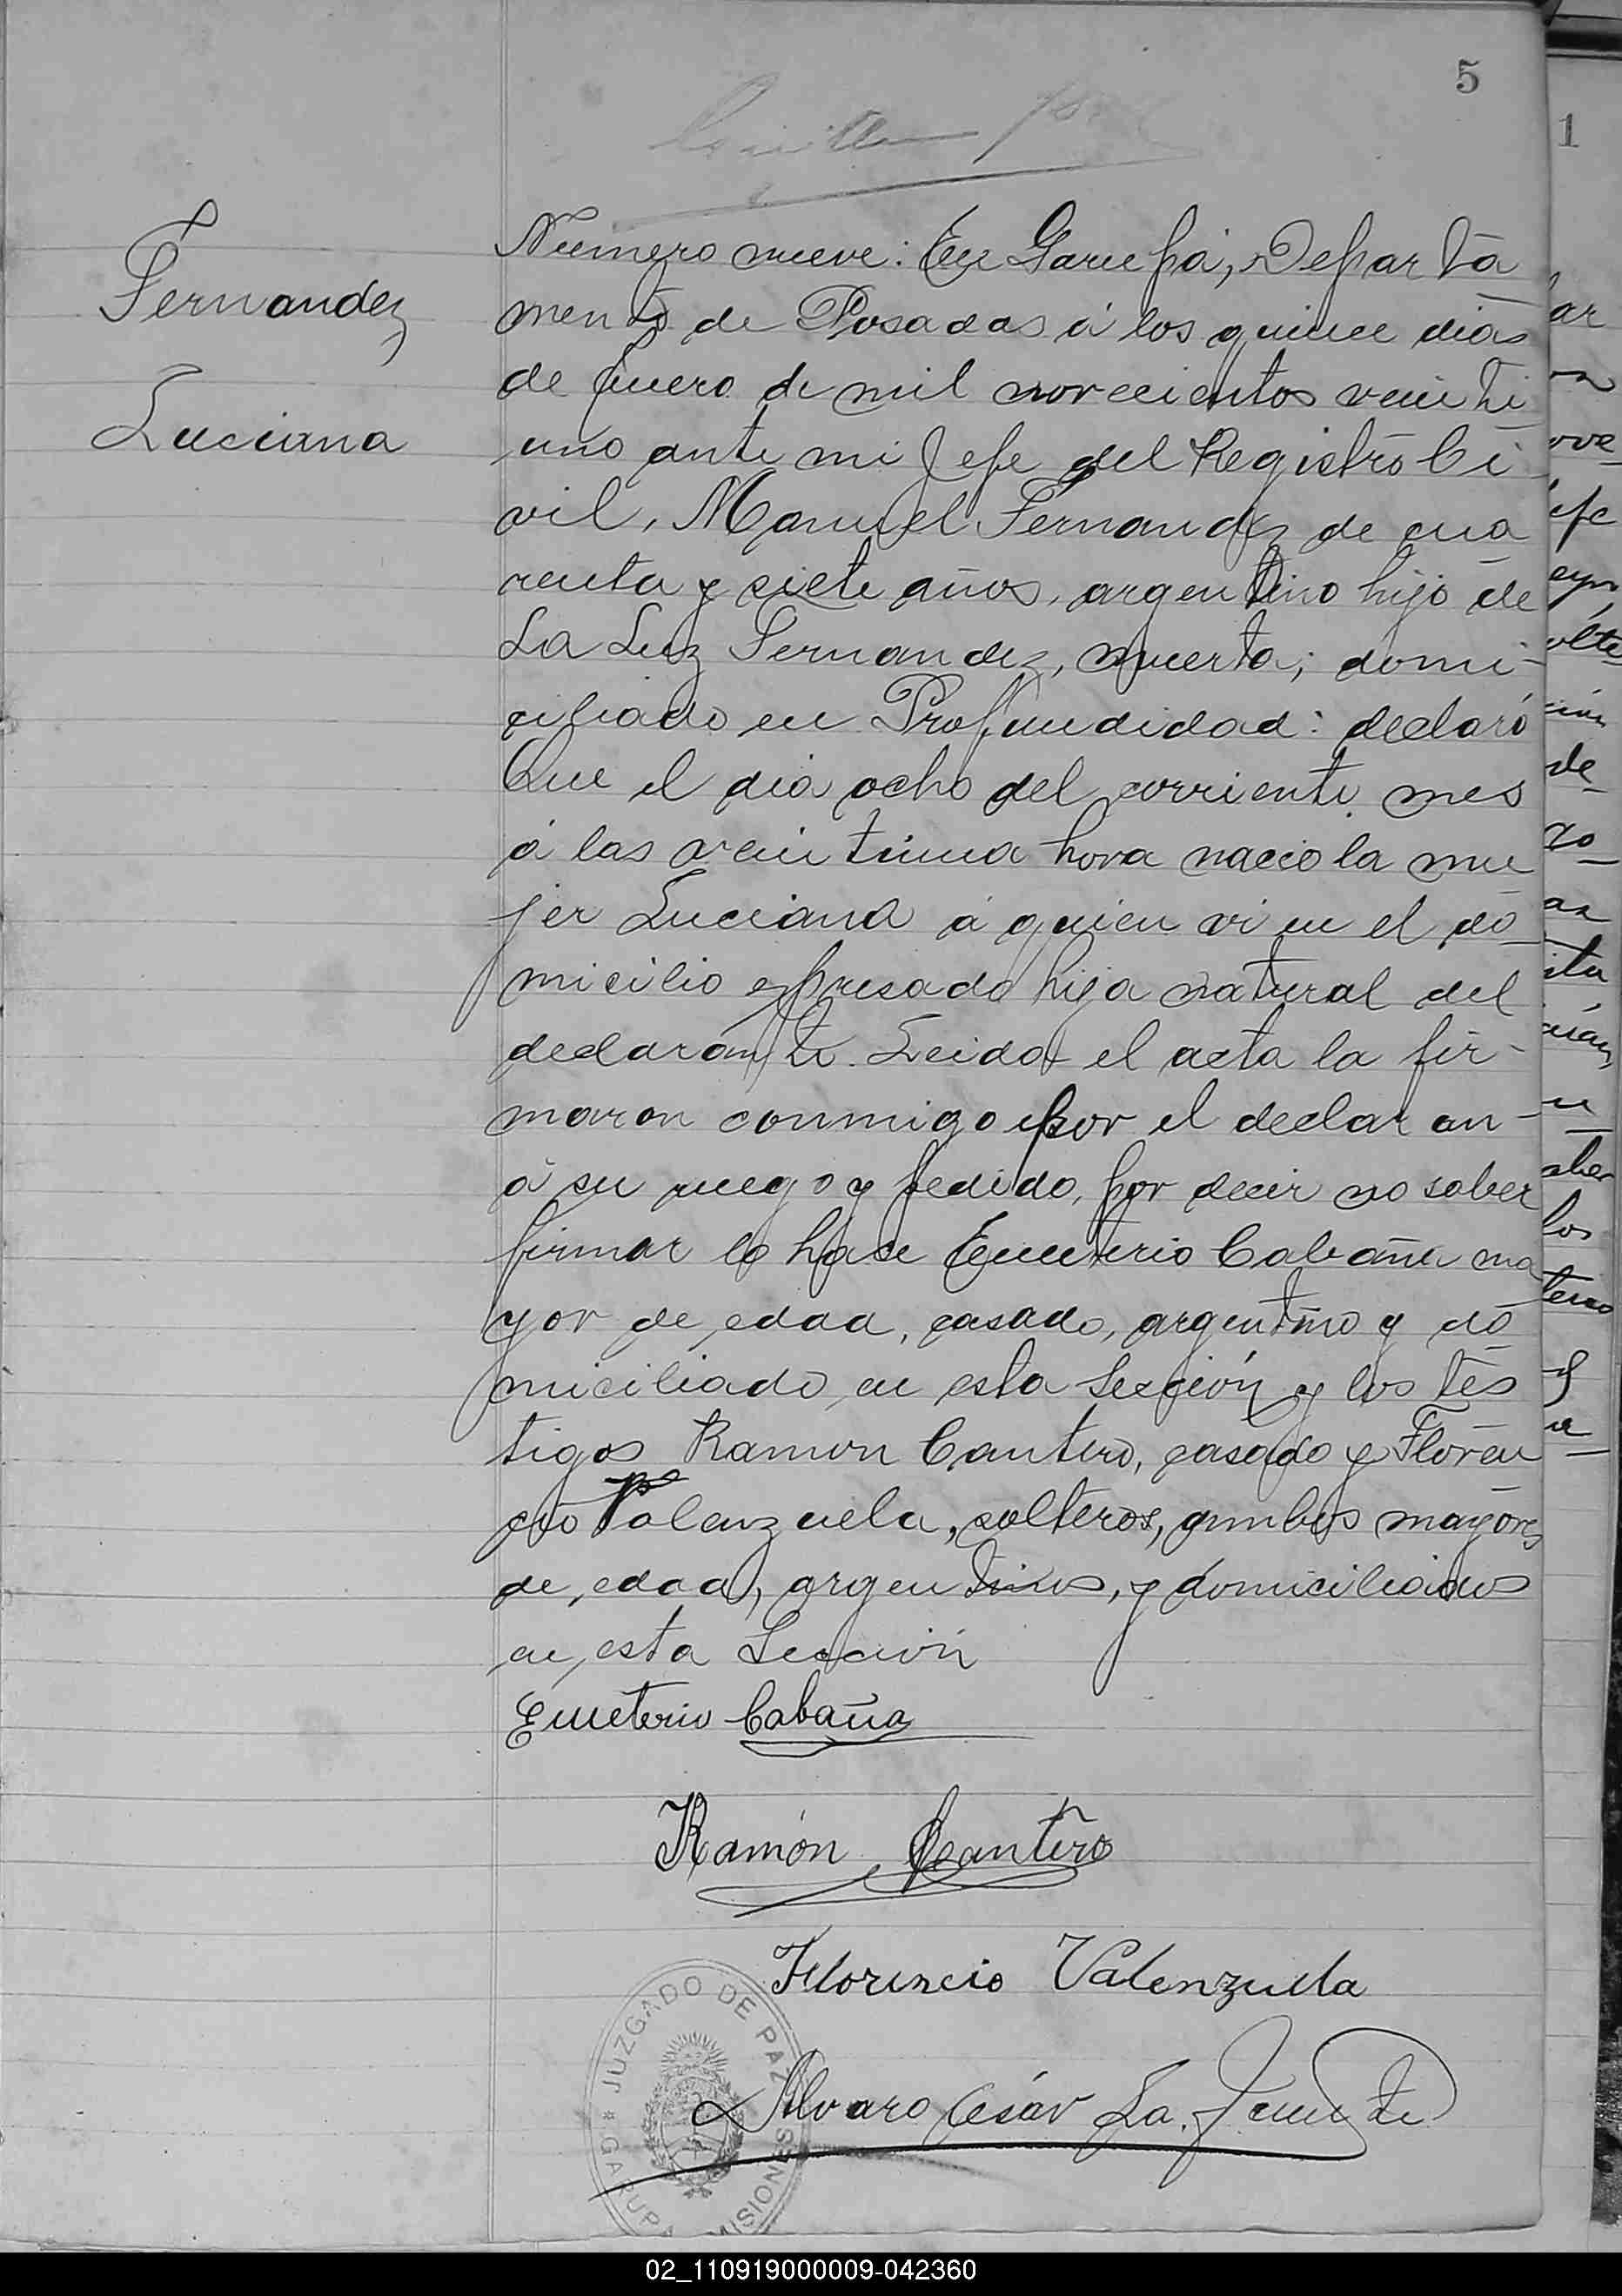 5
Fernandez
Luciana
Número nueve: En Garupá, Departa
mento de Posadas á los quince dias
de Enero de mil novecientos veinti
uno ante mi Jefe del Registro Ci
vil, Manuel Fernandez de cua
renta y siete años, argentino hijo de
La Luz Fernandez, muerta; domi-
ciliado en Profundidad: declaró
Que el dia ocho del corriente mes
á las veintiuna hora nacio la mu
jer Luciana á quien vi en el do
micilio expresado hija natural del
declarante. Leida el acta la fir-
maron conmigo por el declaran-
á su ruego y pedido, por decir no saber
firmar lo hase Emeterio Cabaña ma
yor de edad, casado, argentino y do
miciliado en esta Sección y los tes
tigos Ramon Cantero, casado y Floren
cio Valenzuela, solteros, ambos mayores
de edad, argentinos, y domiciliados
en esta Sección
Emeterio Cabaña
Ramón Cantero
Florencio Valenzuela
Alvaro César La Fuente
JUZGADO DE PAZ
GARUPA MISIONES
1
02_110919000009-042360